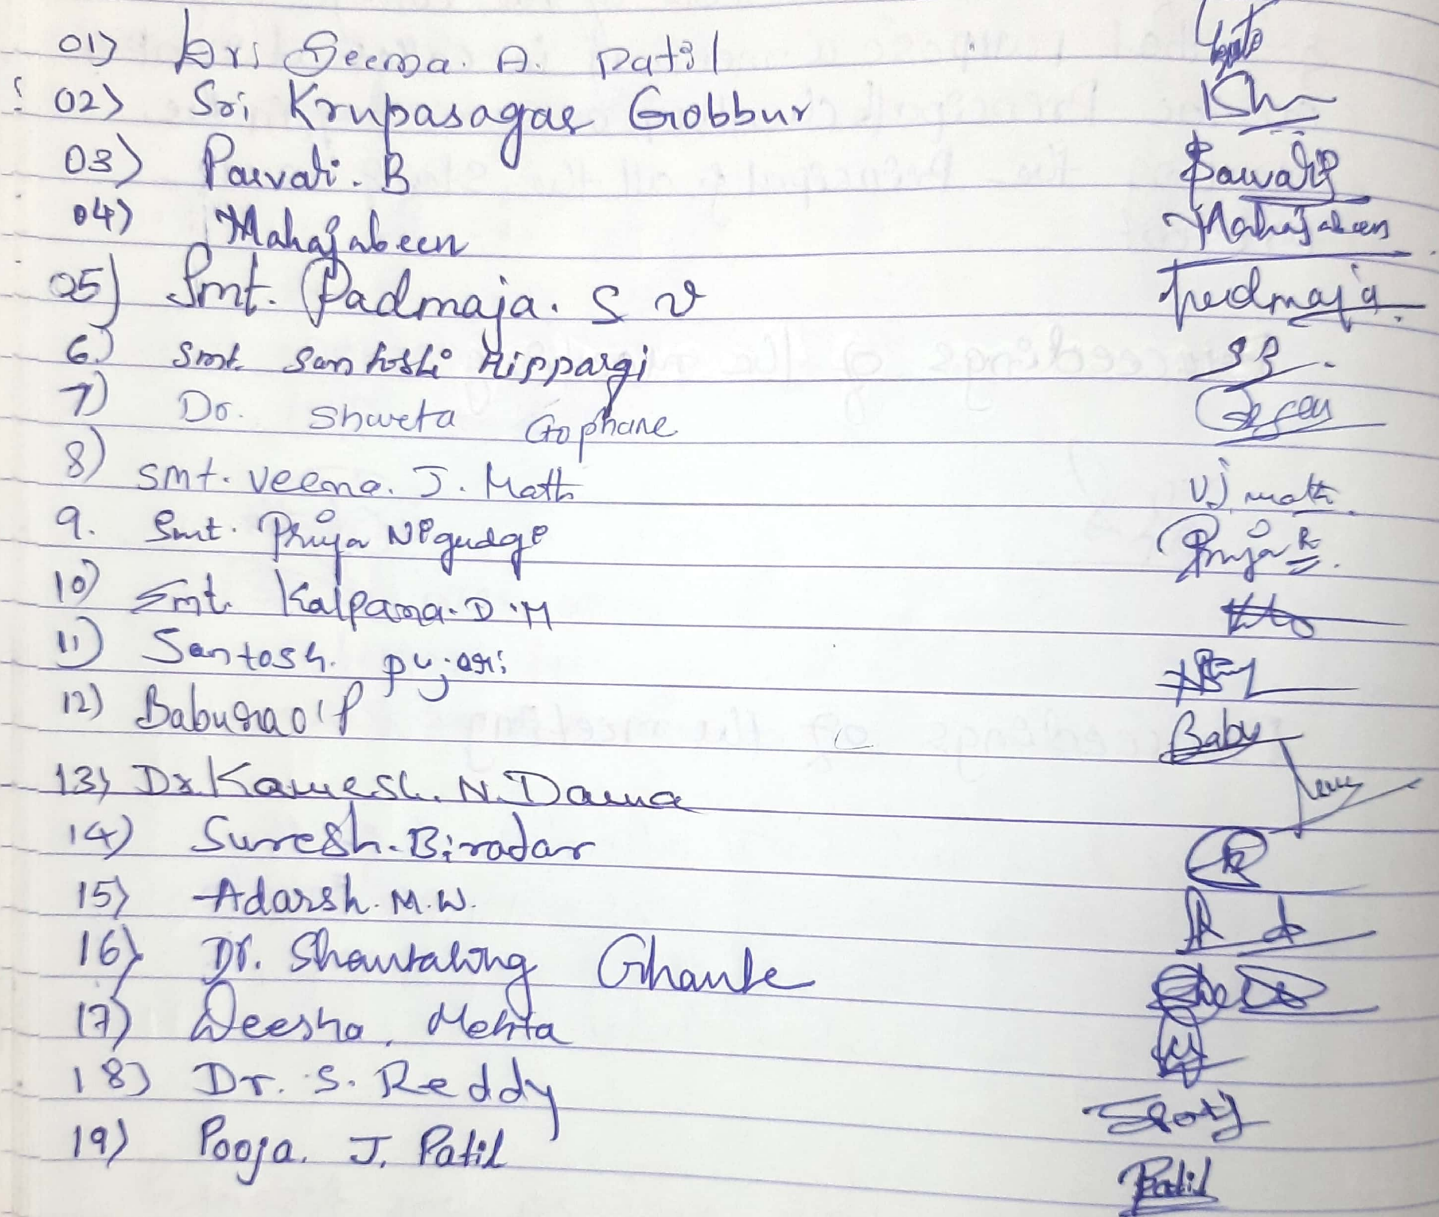 01) Dr. Seema. A. Patil
02) Sri Krupasagar Gobbur Kh
03) Parvati. B Parvati
04) Mahajabeen Mahajabeen
05) Smt. Padmaja. S V Padmaja
6) Smt. Santoshi Hippargi SB.
7) Dr. Shweta Gophane
8) Smt. Veena. J. Math VJ math.
9. Smt. Priya Nigudgi Priya R
10) Smt. Kalpana. D. M
11) Santosh. pujari
12) Baburao P Baby
13) Dr. Kamesh. N. Dama
14) Suresh. Biradar
15) Adarsh. M. W.
16) Dr. Shantaling Ghante
17) Deesha, Mehta
18) Dr. S. Reddy
19) Pooja. J. Patil Patil